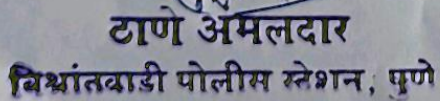 ठाणे अंमलदार
विश्रांतवाडी पोलीस स्टेशन, पुणे